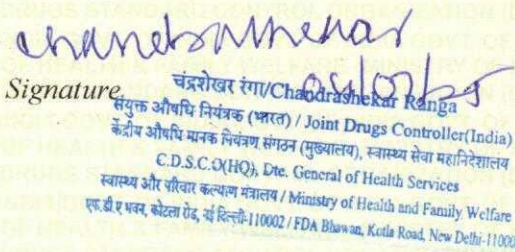 Chandrashekar
04/07/25
Signature
चंद्रशेखर रंगा/Chandrashekar Ranga
संयुक्त औषधि नियंत्रक (भारत) / Joint Drugs Controller(India)
केंद्रीय औषधि मानक नियंत्रण संगठन (मुख्यालय), स्वास्थ्य सेवा महानिदेशालय
C.D.S.C.O(HQ), Dte. General of Health Services
स्वास्थ्य और परिवार कल्याण मंत्रालय / Ministry of Health and Family Welfare
एफ.डी.ए भवन, कोटला रोड, नई दिल्ली-110002 / FDA Bhawan, Kotla Road, New Delhi-11000